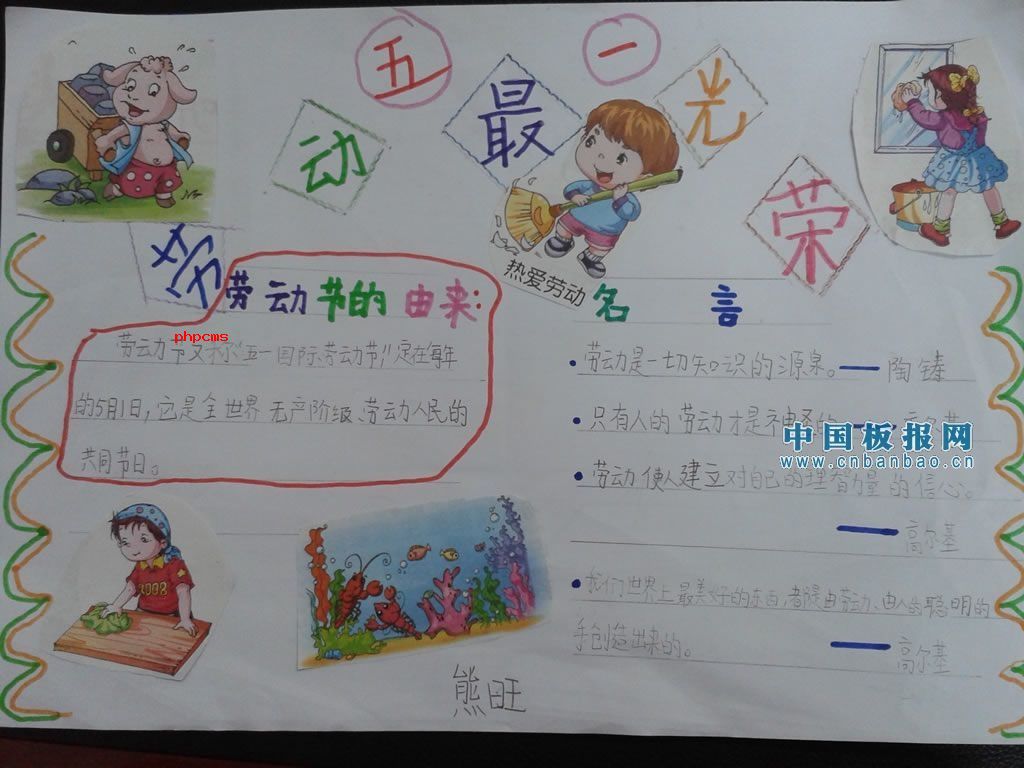 五 一
劳 动 最 光 荣
热爱劳动
劳动节的由来:
phpcms
劳动节又称“五一国际劳动节”定在每年
的5月1日,它是全世界无产阶级、劳动人民的
共同节日。
名 言
• 劳动是一切知识的源泉。——陶铸
• 只有人的劳动才是神圣的——高尔基
中国板报网
www.cnbanbao.cn
• 劳动使人建立对自己的理智力量的信心。
——高尔基
• 我们世界上最美好的东西,都是由劳动、由人的聪明的
手创造出来的。 ——高尔基
2008
熊旺